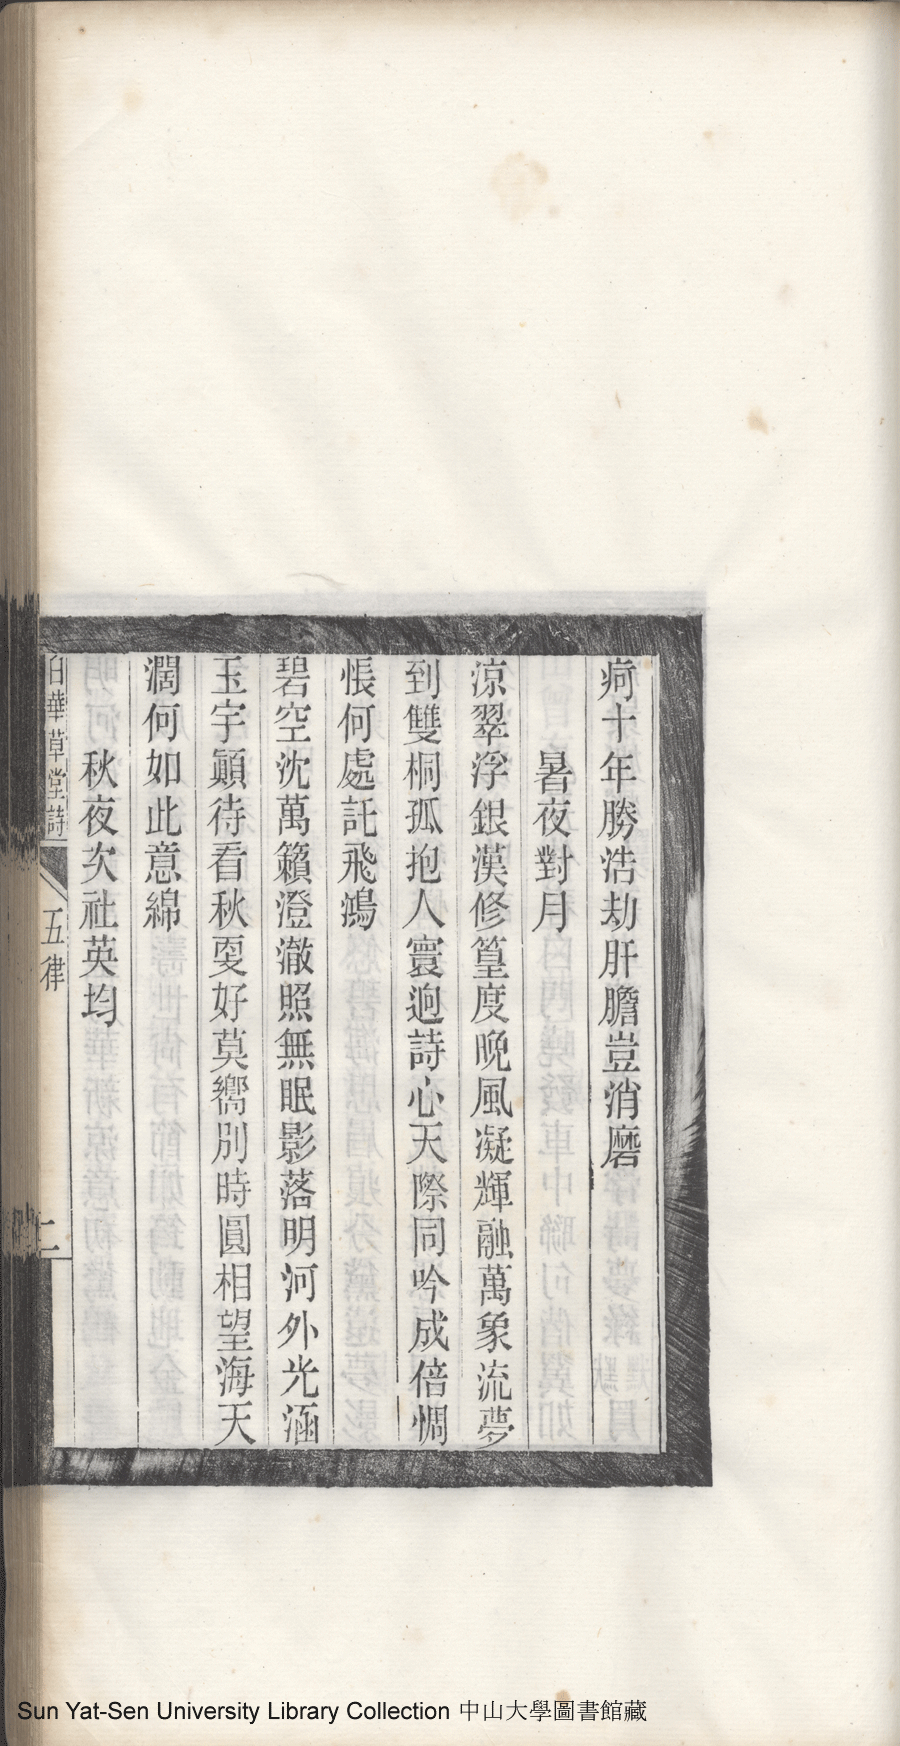 疴十年勝浩劫肝膽豈消磨
暑夜對月
涼翠浮銀漢修篁度晚風凝輝融萬象流夢
到雙桐孤抱人寰迥詩心天際同吟成倍惆
悵何處託飛鴻
碧空沈萬籟澄澈照無眠影落明河外光涵
玉宇顚待看秋更好莫嚮別時圓相望海天
濶何如此意綿
秋夜次社英均
白華草堂詩
五律
二
Sun Yat-Sen University Library Collection 中山大學圖書館藏